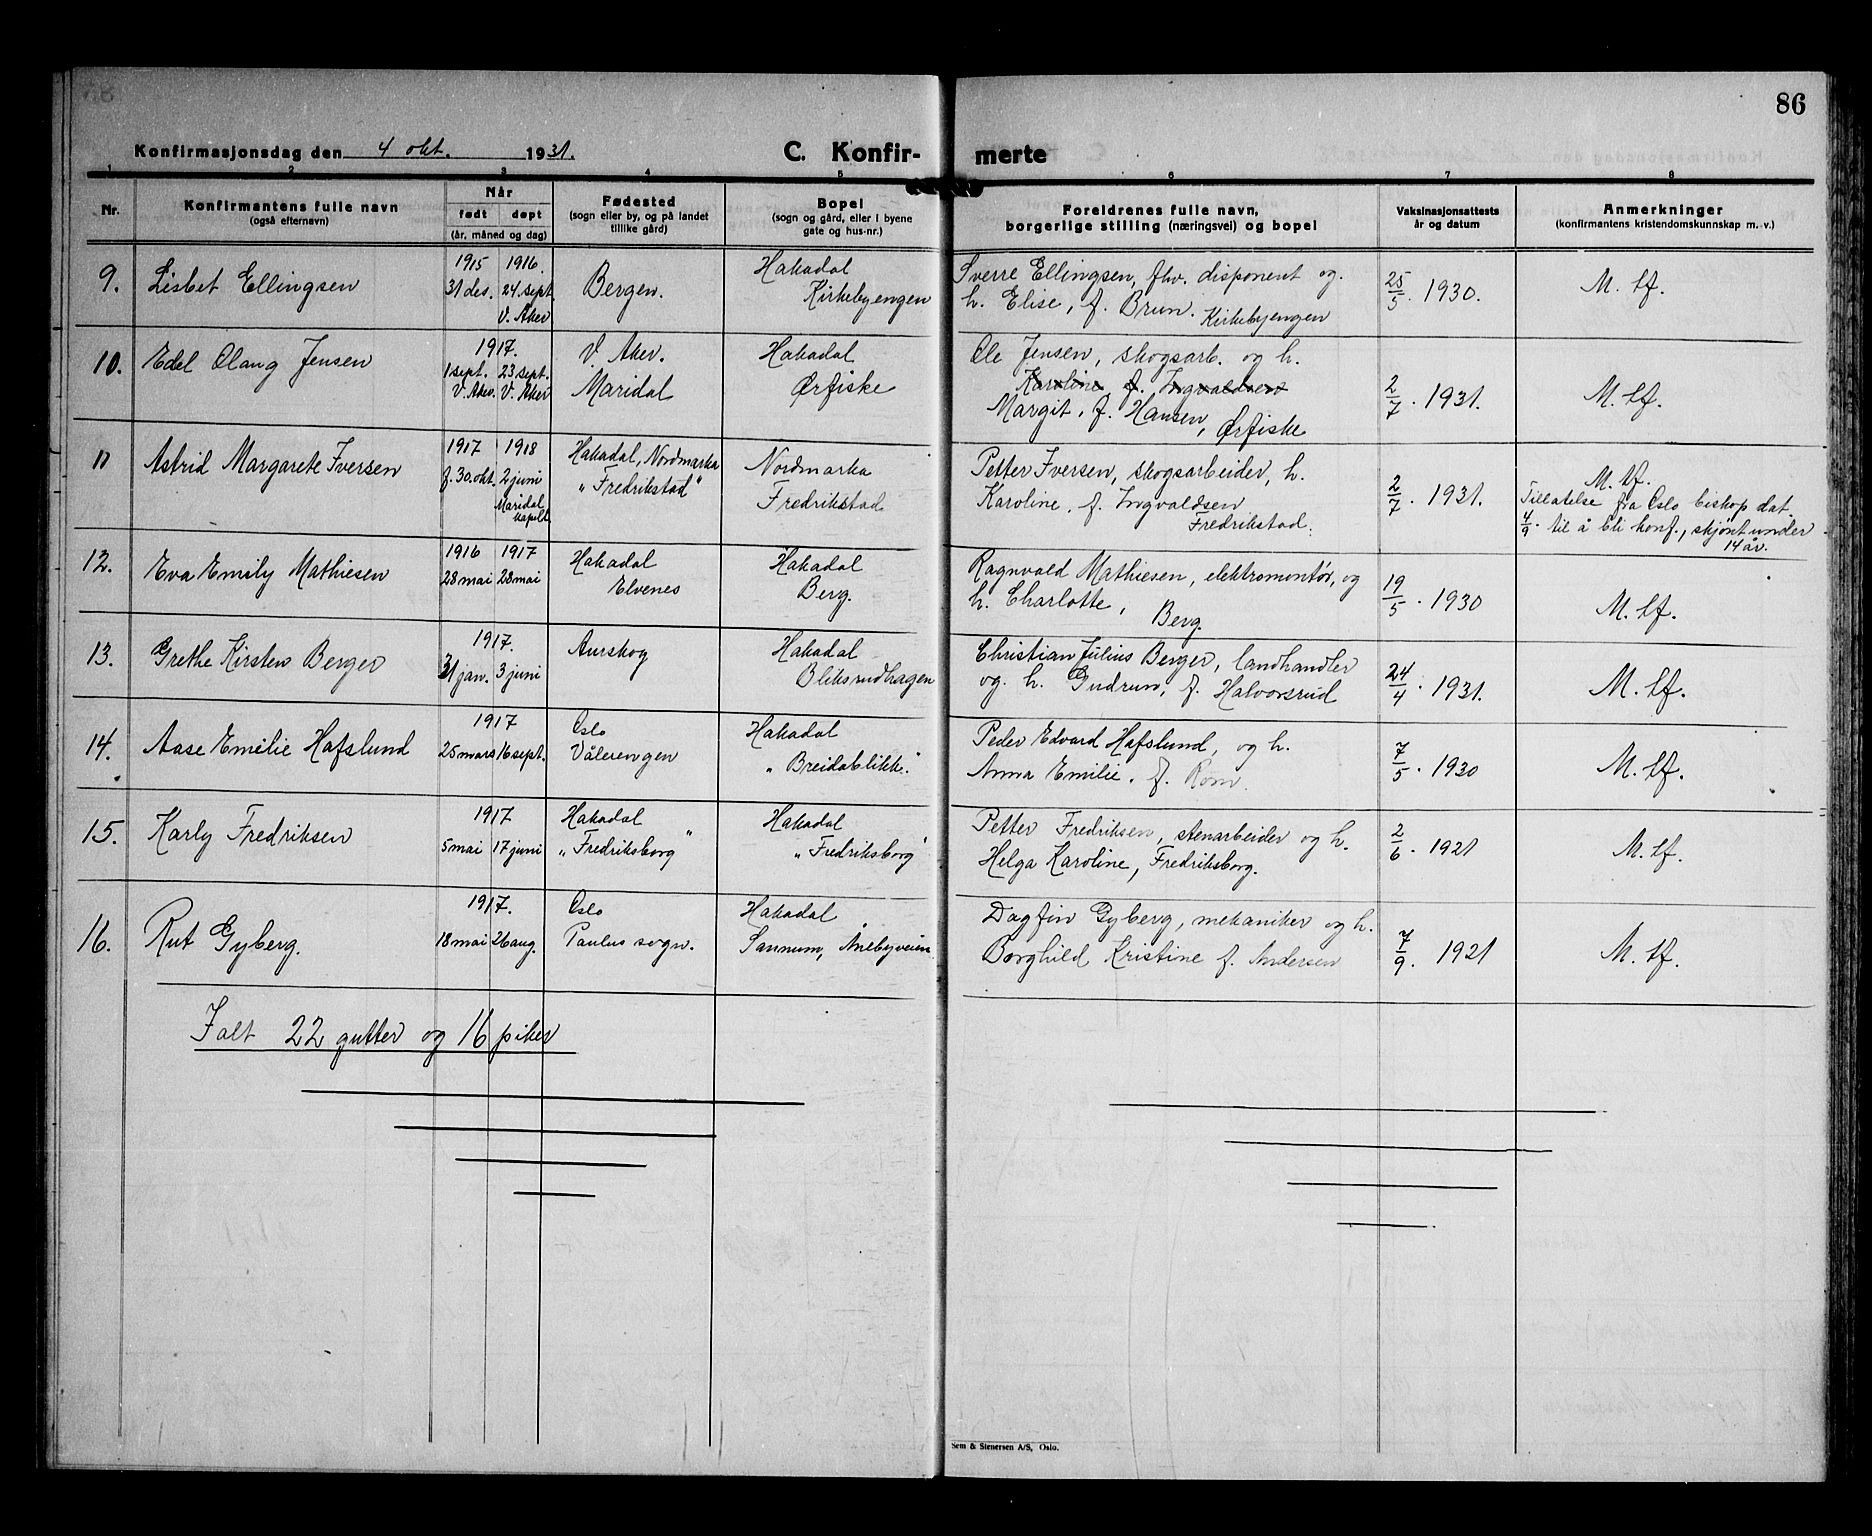 86
Konfirmasjonsdag den 4 okt. 1931.
C. Konfir-
merte
1 2 3 4 5 6 7 8
Nr.
Konfirmantens fulle navn
(også efternavn)
Når
født døpt
(år, måned og dag)
Fødested
(sogn eller by, og på landet
tillike gård)
Bopel
(sogn og gård, eller i byene
gate og hus-nr.)
Foreldrenes fulle navn,
borgerlige stilling (næringsvei) og bopel
Vaksinasjonsattests
år og datum
Anmerkninger
(konfirmantens kristendomskunnskap m. v.)
9. Lisbet Ellingsen
1915 1916.
31 des. 24 sept.
V. Aker
Bergen.
Hakadal
Kirkebyengen
Sverre Ellingsen, fhv. disponent og.
h. Elise, f. Brun. Kirkebyengen
25/5. 1930.
M. tf.
10. Edel Olaug Jensen
1917.
1 sept. 23 sept.
V. Aker. V. Aker
V. Aker.
Maridal
Hakadal
Ørfiske
Ole Jensen, skogsarb. og h.
Karoline f. Ingvaldsen
Margit, f. Hansen, Ørfiske
2/7. 1931.
M. tf.
11 Astrid Margarete Iversen
1917 1918
f. 30. okt. 2 juni
Maridal
kapell
Hakadal, Nordmarka
"Fredrikstad"
Nordmarka
Fredrikstad
Petter Iversen, skogsarbeider, h.
Karoline, f. Ingvaldsen
Fredrikstad.
2/7. 1931.
M. tf.
Tillatelse fra Oslo biskop dat.
4/9. til å bli konf., skjønt under
14 år.
12. Eva Emily Mathiesen
1916 1917
28 mai 28 mai
Hakadal
Elvenes
Hakadal
Berg.
Ragnvald Mathiesen, elektromontør, og
h. Charlotte, Berg.
19/5. 1930
M. tf.
13. Grethe Kirsten Berger
1917.
31 jan. 3 juni
Aurskog
Hakadal
Bliksrudhagen
Christian Julius Berger, landhandler
og. h. Gudrun, f. Halvorsrud
24/4. 1931.
M. tf.
14. Aase Emilie Hafslund
1917
25 mars 16 sept.
Oslo
Vålerengen
Hakadal
"Breidablikk".
Peder Edvard Hafslund, og h.
Anna Emilie. f. Rom.
7/5. 1930
M. tf.
15. Karly Fredriksen
1917
5 mai 17 juni
Hakadal
"Fredriksborg"
Hakadal
"Fredriksborg"
Petter Fredriksen, stenarbeider og h.
Helga Karoline, Fredriksborg.
2/6. 1921
M. tf.
16. Rut Gyberg.
1917.
18 mai 26 aug.
Oslo
Paulus sogn.
Hakadal
Sannum, Ånebyveien
Dagfin Gyberg, mekaniker og h.
Borghild Kristine f. Andersen
7/9. 1921
M. tf.
I alt 22 gutter og 16 piker
Sem & Stenersen A/S, Oslo.